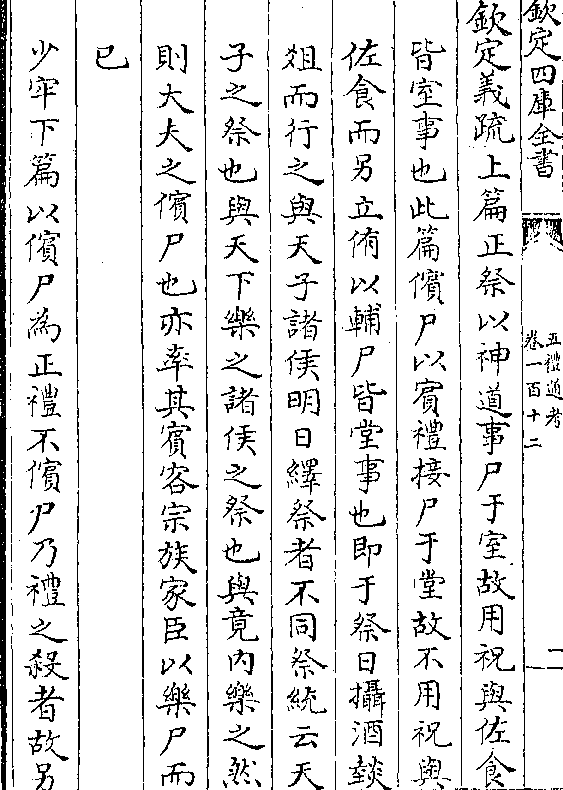 欽定四庫全書
五禮通考
卷一百十二
二
欽定義疏上篇正祭以神道事尸于室故用祝與佐食
皆室事也此篇儐尸以賓禮接尸于堂故不用祝與
佐食而另立侑以輔尸皆堂事也即于祭日攝酒燅
俎而行之與天子諸侯明日繹祭者不同祭統云天
子之祭也與天下樂之諸侯之祭也與竟内樂之然
則大夫之儐尸也亦率其賓客宗族家臣以樂尸而
已
少牢下篇以儐尸為正禮不儐尸乃禮之殺者故另